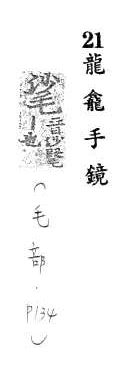 21龍龕手鏡
㲚
(毛部·P134)